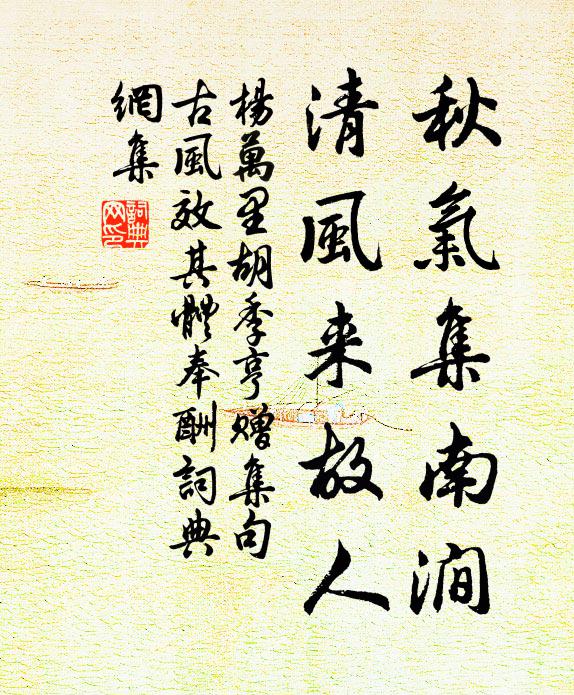 秋氣集南澗
清風来故人
楊萬里胡季亨贈集句
古風效其體奉酬詞典
網集
詞典网印